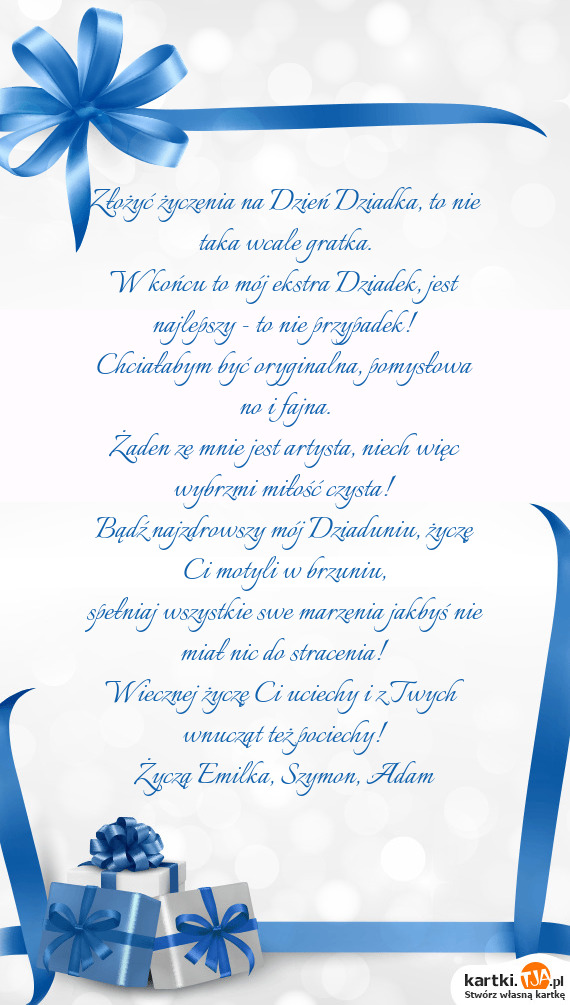 Złożyć życzenia na Dzień Dziadka, to nie
taka wcale gratka.
W końcu to mój ekstra Dziadek, jest
najlepszy - to nie przypadek!
Chciałabym być oryginalna, pomysłowa
no i fajna.
Żaden ze mnie jest artysta, niech więc
wybrzmi miłość czysta!
Bądź najzdrowszy mój Dziaduniu, życzę
Ci motyli w brzuniu,
spełniaj wszystkie swe marzenia jakbyś nie
miał nic do stracenia!
Wiecznej życzę Ci uciechy i z Twych
wnucząt też pociechy!
Życzą Emilka, Szymon, Adam
kartki.TJA.pl
Stwórz własną kartkę